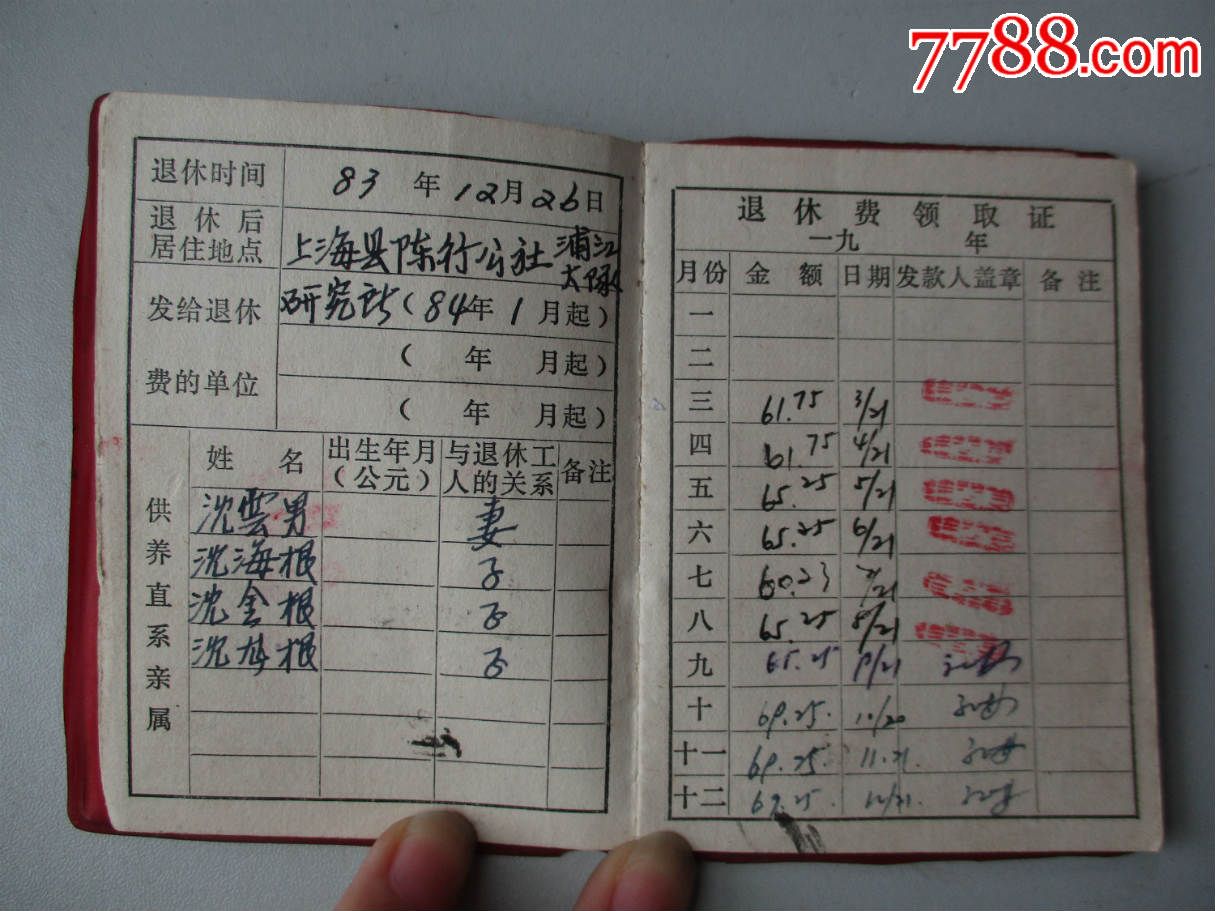 7788.com
退休时间 83年12月26日
退休后居住地点 上海县陈行公社浦江大队
发给退休费的单位 研究所(84年1月起)
( 年 月起)
( 年 月起)
供养直系亲属
姓名 出生年月(公元) 与退休工人的关系 备注
沈雲男 妻
沈海根 子
沈金根 子
沈 根 子
退休费领取证
一九 年
月份 金额 日期 发款人盖章 备注
一
二
三 61.75 3/21
四 61.75 4/21
五 65.25 5/21
六 65.25 6/21
七 60.23 7/21
八 65.25 8/21
九 65.25 9/21
十 69.25. 10/20
十一 69.25. 11.21.
十二 69.25. 12/21.